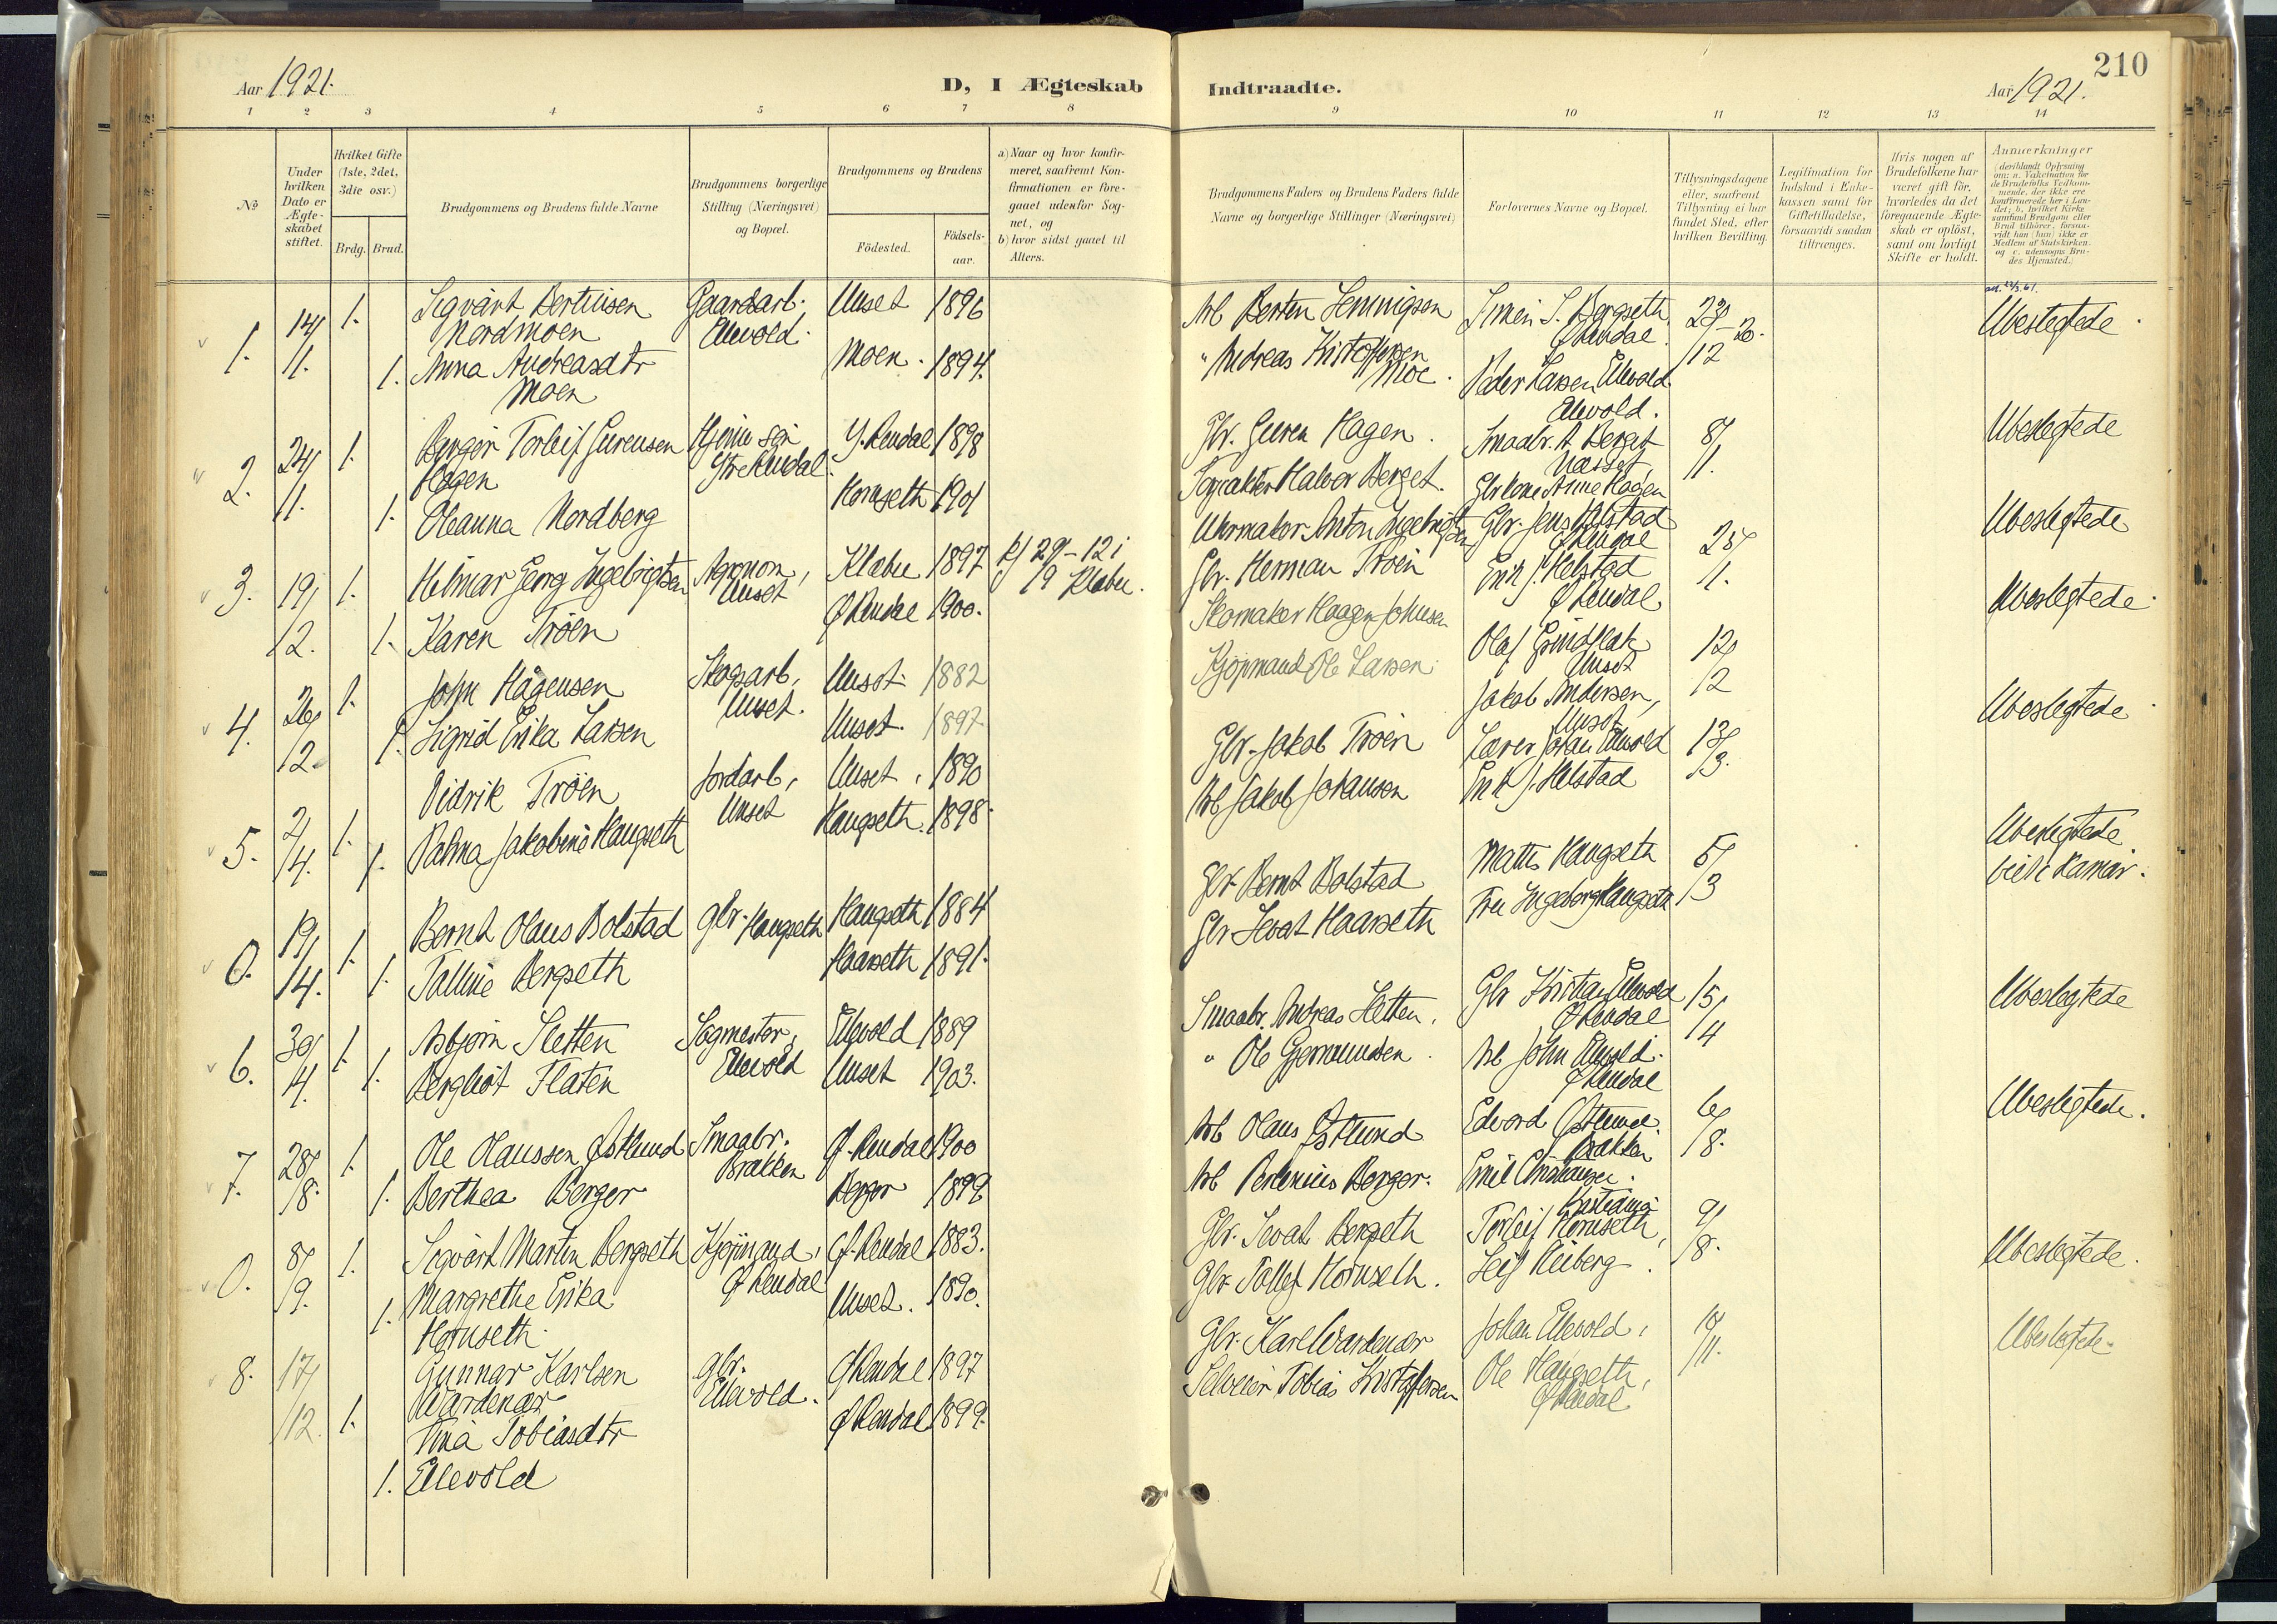 210
Aar 1921.
D, I Ægteskab Indtraadte.
Aar 1921.
1 2 3 4 5 6 7 8 9 10 11 12 13 14
No
Under hvilken Dato er Ægteskabet stiftet.
Hvilket Gifte (1ste, 2det, 3die osv.)
Brdg. Brud.
Brudgommens og Brudens fulde Navne
Brudgommens borgerlige Stilling (Næringsvei) og Bopæl.
Brudgommens og Brudens
Födested.
Födsels-aar.
a) Naar og hvor konfir-
meret, saafremt Kon-
firmationen er fore-
gaaet udenfor Sog-
net, og
b) hvor sidst gaaet til
Alters.
Brudgommens Faders og Brudens Faders fulde
Navne og borgerlige Stillinger (Næringsvei)
Forlovernes Navne og Bopæl.
Tillysningsdagene
eller, saafremt
Tillysning ei har
fundet Sted, efter
hvilken Bevilling.
Legitimation for
Indskud i Enke-
kassen samt for
Giftetilladelse,
forsaavidt saadan
tiltrænges.
Hvis nogen af
Brudefolkene har
været gift för,
hvorledes da det
foregaaende Ægte-
skab er oplöst,
samt om lovligt
Skifte er holdt.
Anmærkninger
(deriblandt Oplysning
om: a. Vakcination for
de Brudefolks Vedkom-
mende, der ikke ere
konfirmerede her i Lan-
det; b. hvilket Kirke-
samfund Brudgom eller
Brud tilhörer, forsaa-
vidt han (hun) ikke er
Medlem af Statskirken.
og c. udensogns Bru-
des Hjemsted.)
1. 14/1. 1. Sigvart Bertinsen Nordmoen Gaardarb. Ellevold. Unset 1896 Arb Berten Hemmigsen Simen S. Bergseth Ø Rendal. 23/12-20. Ubeslegtede
1. Anna Andreasdtr Moen Moen. 1894. " Andreas Kristoffersen Moe. Peder Larsen Ellevold Ellevold.
2. 24/1. 1. Berger Torleif Gurensen Hagen Hjemme søn Ytre Rendal. Y. Rendal 1898 Gbr. Guren Hagen. Smaabr. A Berget Næsset 8/1. Ubeslegtede
1. Oleanna Nordberg Hornseth 1901 Halvor Berget. Gbrkone Anne Hagen
3. 19/2. 1. Hilmar Georg Ingebrigtsen Agronom, Unset Klæbu 1897 k/ 29-12 i 19 Klæbu. Uhrmaker Anton Ingebrigtsen Gbr. Jens Helstad Ø Rendal 23/1. Ubeslegtede
1. Karen Trøen Ø Rendal 1900. Gbr. Herman Trøen Erik J. Helstad Ø Rendal
4. 26/2. 1. John Hågensen Skogsarb, Unset. Unset 1882 Skomaker Haagen Johnsen Olaf Grindflæk Unset 12/2 Ubeslegtede
1. Sigrid Erika Larsen Unset. 1897 Kjøpmand Ole Larsen Jakob Andersen, Unset
5. 2/4. 1. Didrik Trøen Jordarb, Unset Unset, 1890 Gbr. Jakob Trøen Lærer Johan Ellevold 13/3. Ubeslegtede
1. Palma Jakobine Haugseth Haugseth. 1898. Arb Jakob Johansen Erik J. Helstad
0. 19/14. 1. Bernt Olaus Bolstad Gbr. Haugseth Haugseth 1884 Gbr. Bernt Bolstad Mattis Haugseth 5/3 Ubeslegtede viet i Hamar.
1. Talline Bergseth Haarseth 1891. Gbr Sevat Haarseth Fru Ingeborg Haugseth
6. 30/4. 1. Asbjørn Sletten Sagmester, Ellevold Ellevold 1889 Smaabr. Andreas Sletten. Gbr Kristian Ellevold Ø Rendal 15/4 Ubeslegtede
1. Bergliot Flaten Unset 1903. " Ole Gjermundsen. Arb John Ellevold. Ø Rendal
7. 28/8. 1. Ole Olaussen Østlund Smaabr. Bakken Ø. Rendal 1900 Arb Olaus Østlund Edvard Østlund. Bakken 6/8. Ubeslegtede.
1. Berthea Berger Berger 1899 Arb Berger. Emil Kristiania
0. 8/9. 1. Sigvart Martin Bergseth Kjøpmand, Ø Rendal Ø. Rendal 1883. Gbr. Sevat Bergseth Torleif Hornseth, 9/8. Ubeslegtede.
1. Margrethe Erika Hornseth. Unset. 1890. Gbr. Tollef Hornseth. Leif Kiberg.
8. 17/12. 1. Gunnar Karlsen Wardenær Gbr. Ellevold. Ø Rendal 1897 Gbr. Karl Wardenær Johan Ellevold, /11. Ubeslegtede.
1. Tina Tobiasdtr Ellevold Ø Rendal 1899. Selveier Tobias Kristoffersen Ole Haugseth, Ø Rendal